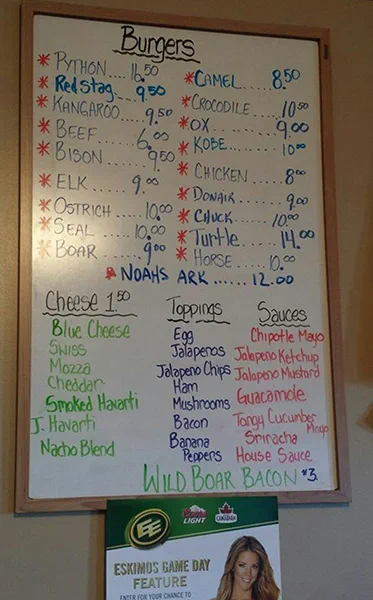 Burgers
* PYTHON.... 16.50
* Red Stag.. 9.50
* KANGAROO.... 9.50
* BEEF...... 6.00
* BISON...... 9.50
* ELK...... 9.00
* OSTRICH..... 10.00
* SEAL....... 10.00
* BOAR...... 9.00
* CAMEL..... 8.50
* CROCODILE.... 10.50
* OX......... 9.00
* KOBE...... 10.00
* CHICKEN.... 8.00
* DONAIR..... 9.00
* CHUCK..... 10.00
* Turtle..... 14.00
* HORSE..... 10.00
* NOAHS ARK....... 12.00
Cheese 1.50
Blue Cheese
Swiss
Mozza
Cheddar
Smoked Havarti
J. Havarti
Nacho Blend
Toppings
Egg
Jalapenos
Jalapeno Chips
Ham
Mushrooms
Bacon
Banana
Peppers
Sauces
Chipotle Mayo
Jalapeno Ketchup
Jalapeno Mustard
Guacamole
Tangy Cucumber
Mayo
Sriracha
House Sauce
WILD BOAR BACON $3.
EE
Coors
LIGHT
CANADIAN
ESKIMOS GAME DAY
FEATURE
ENTER FOR YOUR CHANCE TO